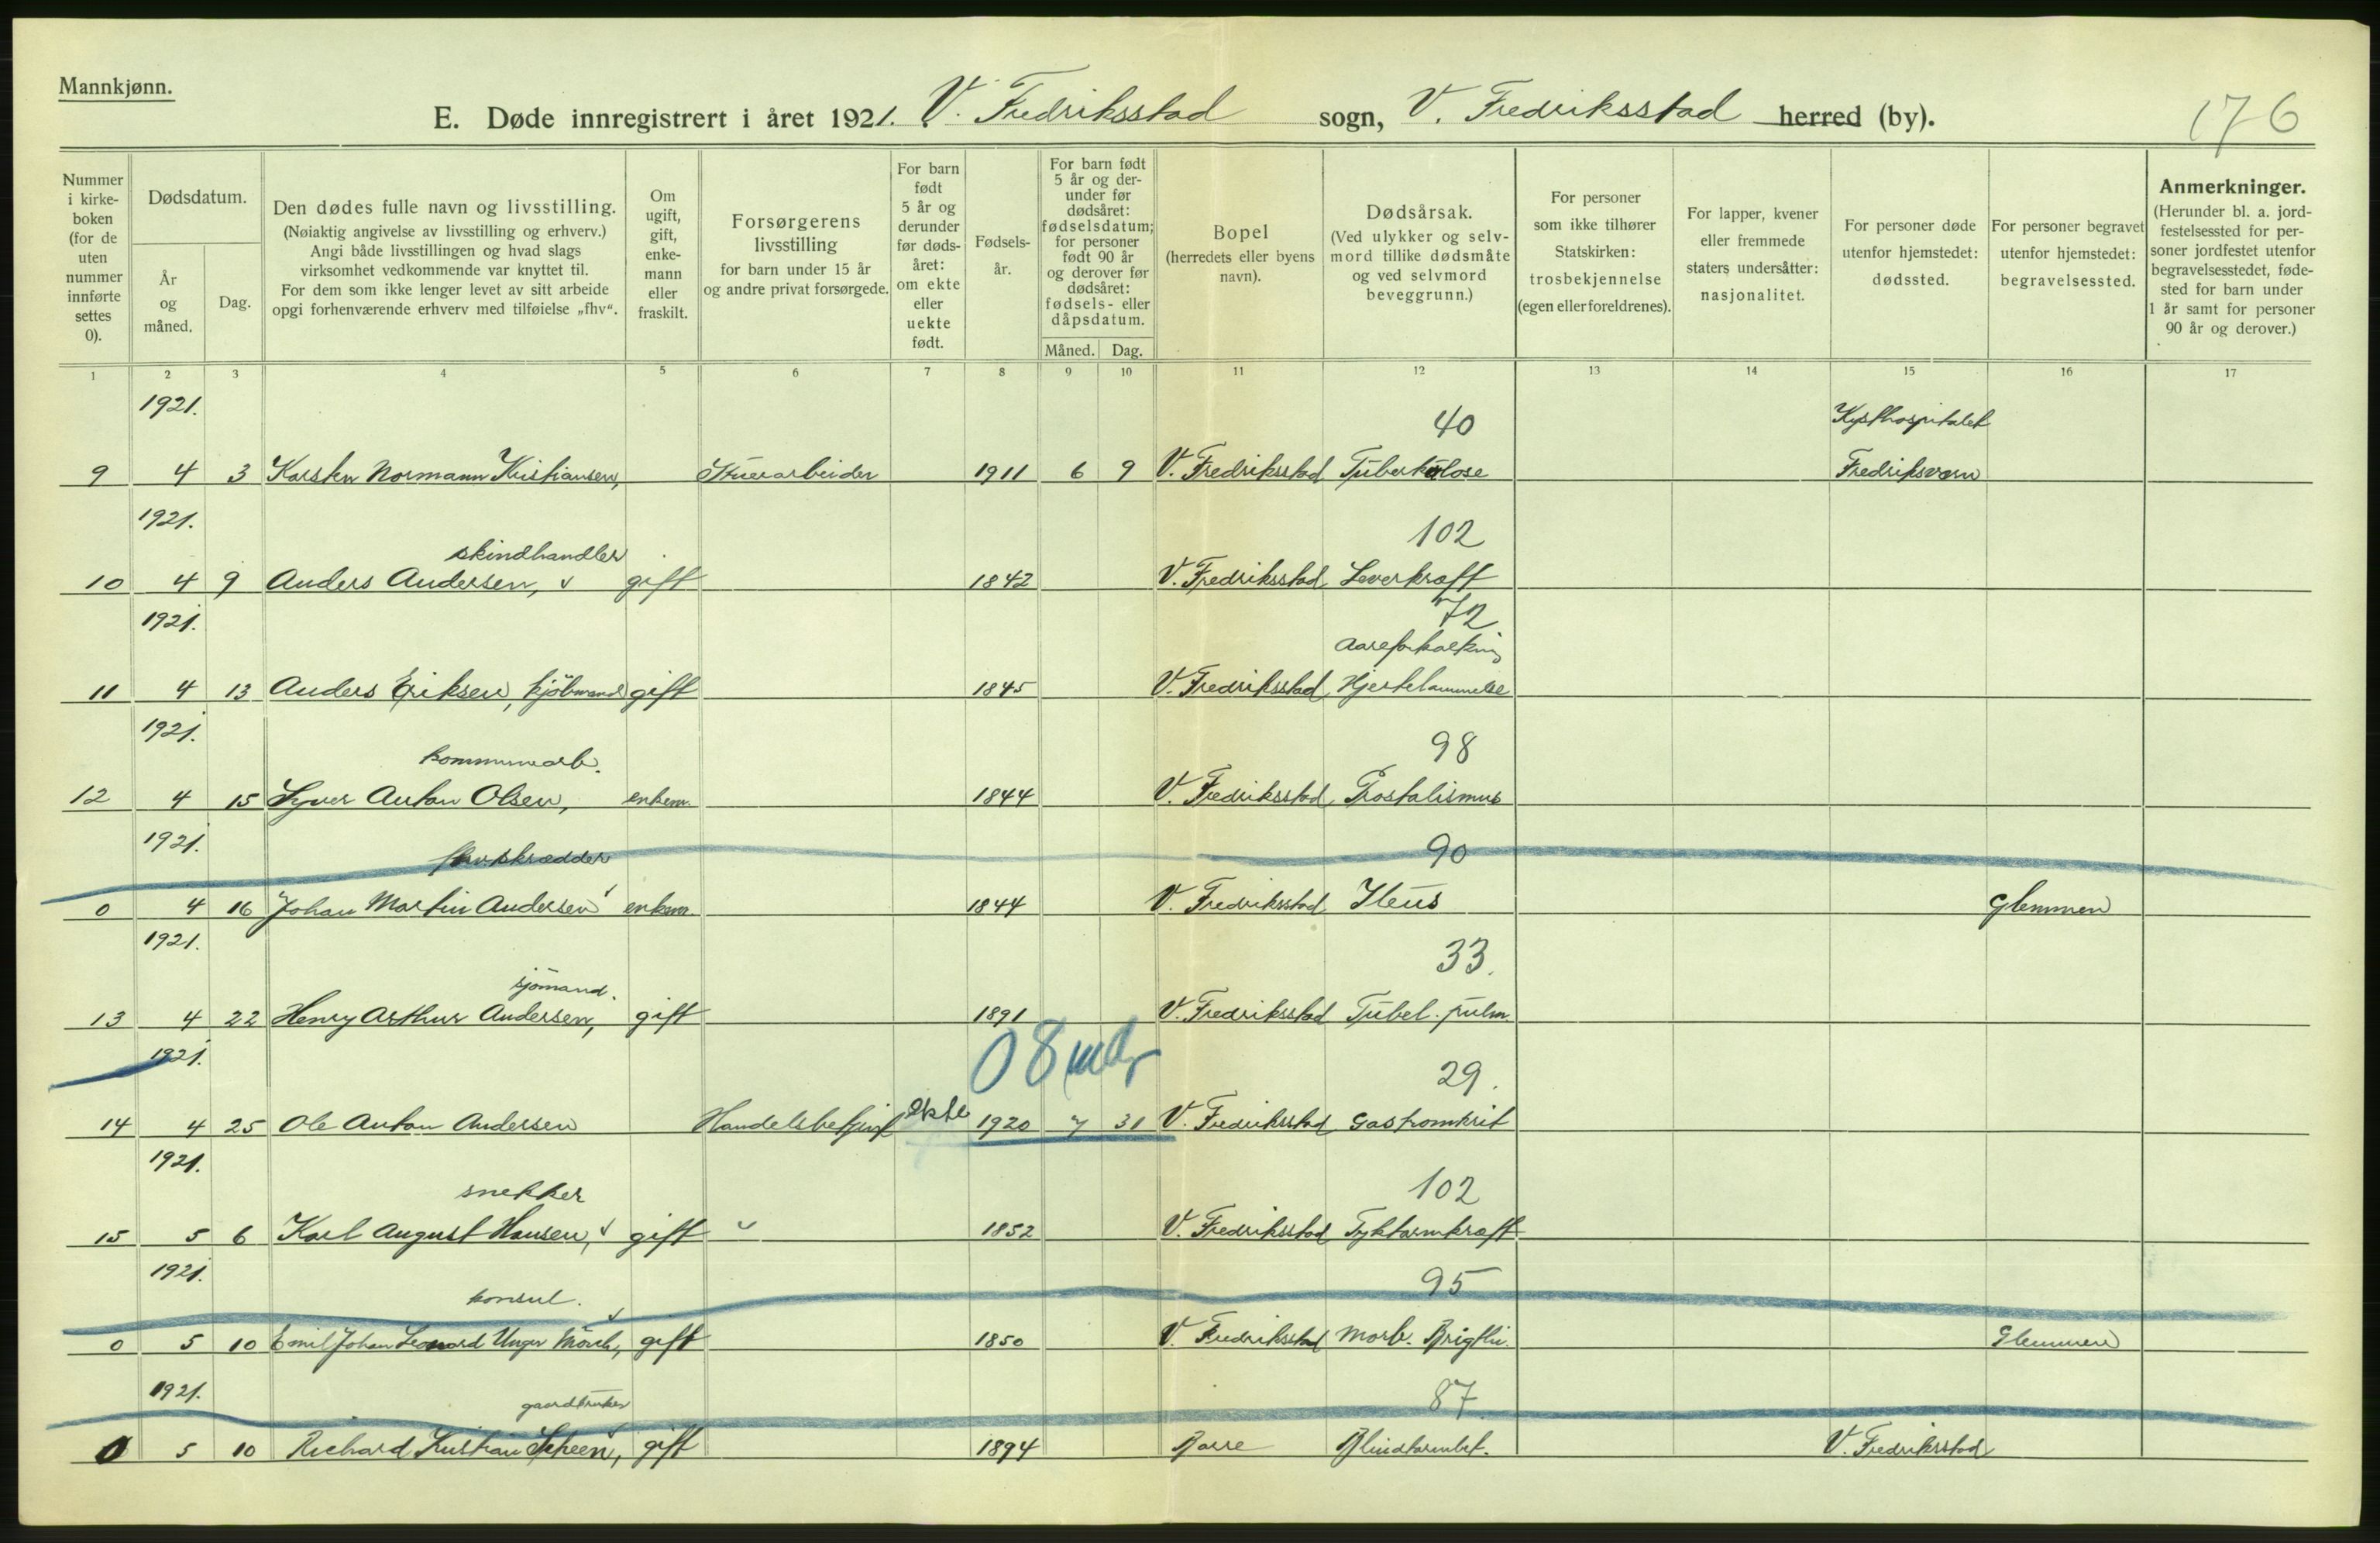 Mannkjønn.
E. Døde innregistrert i året 1921. V. Fredriksstad sogn, V. Fredriksstad herred (by).
176
Nummer i kirkeboken (for de uten nummer innførte settes 0).
Dødsdatum.
År og måned.
Dag.
Den dødes fulle navn og livsstilling.
(Nøiaktig angivelse av livsstilling og erhverv.)
Angi både livsstillingen og hvad slags
virksomhet vedkommende var knyttet til.
For dem som ikke lenger levet av sitt arbeide
opgi forhenværende erhverv med tilføielse „fhv“.
Om ugift, gift, enkemann eller fraskilt.
Forsørgerens livsstilling
for barn under 15 år
og andre privat forsørgede.
For barn født 5 år og derunder før dødsåret: om ekte eller uekte født.
Fødselsår.
For barn født 5 år og derunder før dødsåret: fødselsdatum; for personer født 90 år og derover før dødsåret: fødsels- eller dåpsdatum.
Måned. Dag.
Bopel
(herredets eller byens navn).
Dødsårsak.
(Ved ulykker og selvmord tillike dødsmåte og ved selvmord beveggrunn.)
For personer som ikke tilhører Statskirken: trosbekjennelse (egen eller foreldrenes).
For lapper, kvener eller fremmede staters undersåtter: nasjonalitet.
For personer døde utenfor hjemstedet: dødssted.
For personer begravet utenfor hjemstedet: begravelsessted.
Anmerkninger.
(Herunder bl. a. jordfestelsessted for personer jordfestet utenfor begravelsesstedet, fødested for barn under 1 år samt for personer 90 år og derover.)
1 2 3 4 5 6 7 8 9 10 11 12 13 14 15 16 17
1921. 40 Kysthospitalet
9 4 3 Karsten Normann Kristiansen, Stuerarbeider 1911 6 9 V. Fredriksstad Tuberkulose Fredriksvern
1921. 102
skindhandler
10 4 9 Anders Andersen, gift 1842 V. Fredriksstad Leverkræft
1921. 72
Aareforkalkning
11 4 13 Anders Eriksen, kjöbmand gift 1845 V. Fredriksstad Hjertelammelse
1921. 98
kommunearb.
12 4 15 Syver Anton Olsen, enkem. 1844 V. Fredriksstad Prostatismus
1921. 90
fhv. skrædder
0 4 16 Johan Martin Andersen enkem. 1844 V. Fredriksstad Ileus Glemmen
1921. 33.
sjömand.
13 4 22 Henry Arthur Andersen, gift 1891 V. Fredriksstad Tubel. pulm.
1921. 08 mdr 29.
14 4 25 Ole Anton Andersen Handelsbetjent ekte 1920 7 31 V. Fredriksstad
1921. 102
snekker
15 5 6 Karl August Hansen, gift 1852 V. Fredriksstad Tyktarmkræft
1921. 95
konsul.
0 5 10 Emil Johan Leonard Unger Mörch, gift 1850 V. Fredriksstad Morb. Brigthi. Glemmen
1921. 87
gaardbruker
0 5 10 Richard Kristian Scheen, gift 1894 Borre Blindtarmbet. V. Fredriksstad